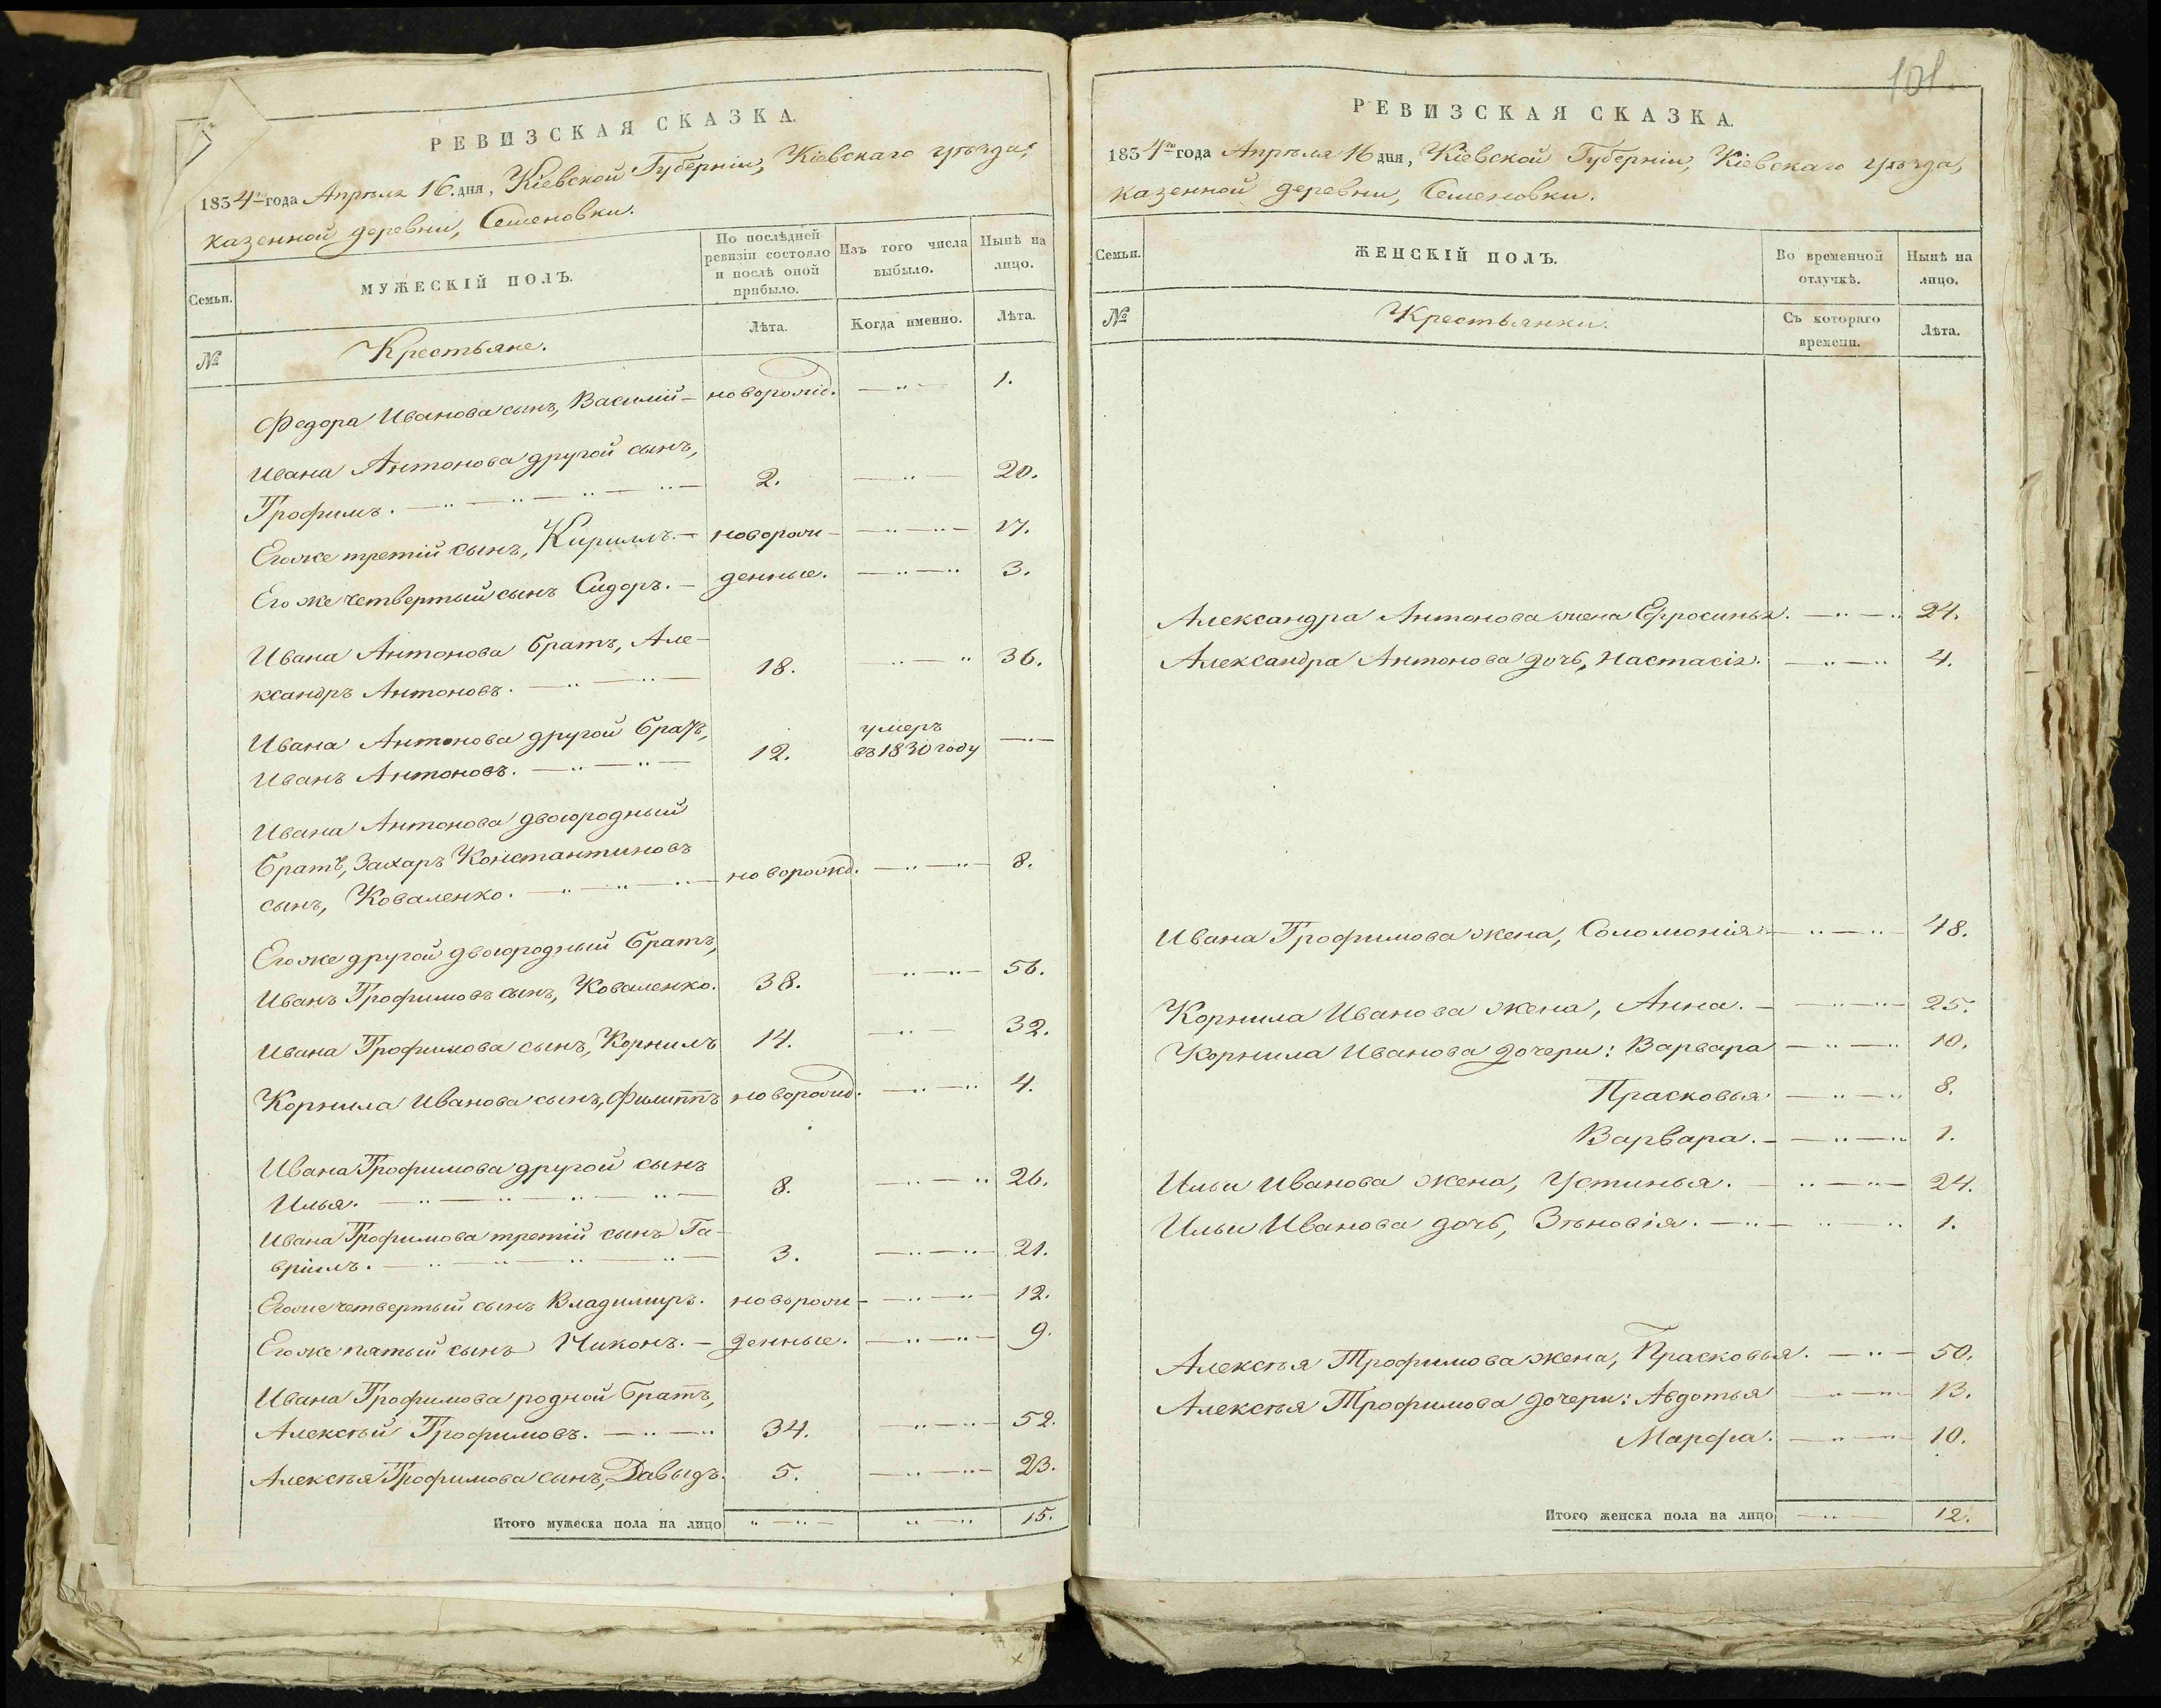 РЕВИЗСКАЯ СКАЗКА.
1834го года Апрѣля 16. дня, Кіевской Губерніи, Кіевскаго уѣзда,
казенной деревни, Семеновки.
Семьи.
МУЖЕСКІЙ ПОЛЪ.
По послѣдней ревизіи состояло и послѣ оной прибыло.
Изъ того числа выбыло.
Нынѣ на лицо.
№
Крестьяне.
Лѣта.
Когда именно.
Лѣта.
Федора Иванова сынъ, Василій — новорожд. — 1.
Ивана Антонова другой сынъ,
Трофимъ. — 2. — 20.
Егоже третій сынъ, Кириллъ. — новорож- — 17.
Его же четвертый сынъ Сидоръ. — денные. — 3.
Ивана Антонова братъ, Але-
ксандръ Антоновъ. — 18. — 36.
Ивана Антонова другой братъ,
Иванъ Антоновъ. — 12. умеръ въ 1830 году —
Ивана Антонова двоюродный
братъ, Захаръ Константиновъ
сынъ, Коваленко. — новорожд. — 8.
Егоже другой двоюродный братъ,
Иванъ Трофимовъ сынъ, Коваленко. 38. — 56.
Ивана Трофимова сынъ, Корнилъ 14. — 32.
Корнила Иванова сынъ, Филиппъ новорожд. — 4.
Ивана Трофимова другой сынъ
Илья. — 8. — 26.
Ивана Трофимова третій сынъ Га-
вріилъ. — 3. — 21.
Егоже четвертый сынъ Владимиръ. новорож- — 12.
Егоже пятый сынъ Никонъ. — денные. — 9.
Ивана Трофимова родной братъ,
Алексѣй Трофимовъ. — 34. — 52.
Алексѣя Трофимова сынъ, Давыдъ. 5. — 23.
Итого мужеска пола на лицо — 15.
101.
РЕВИЗСКАЯ СКАЗКА.
1834го года Апрѣля 16 дня, Кіевской Губерніи, Кіевскаго уѣзда,
казенной деревни, Семеновки.
Семьи.
ЖЕНСКІЙ ПОЛЪ.
Во временной отлучкѣ.
Нынѣ на лицо.
№
Крестьянки.
Съ котораго времени.
Лѣта.
Александра Антонова жена Ефросинья. — 24.
Александра Антонова дочь, Настасія. — 4.
Ивана Трофимова жена, Соломонія — 48.
Корнила Иванова жена, Анна. — 25.
Корнила Иванова дочери: Варвара — 10.
Прасковья — 8.
Варвара. — 1.
Ильи Иванова жена, Устинья. — 24.
Ильи Иванова дочь, Зѣновія. — 1.
Алексѣя Трофимова жена, Прасковья. — 50.
Алексѣя Трофимова дочери: Авдотья — 13.
Марфа. — 10.
Итого женска пола на лицо — 12.